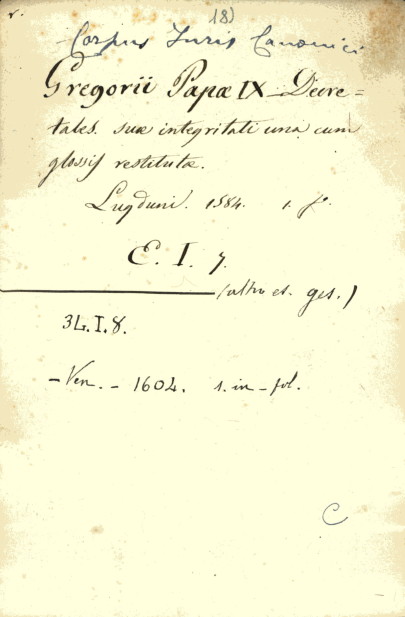 v. 18)
Corpus Juris Canonici
Gregorii Papæ IX Decre=
tales suæ integritati una cum
glossis restitutæ.
Lugduni. 1584. 1. f.º
E. I. 7.
(altro es. ges.)
34.I.8.
- Ven. - 1604. 1. in-fol.
C